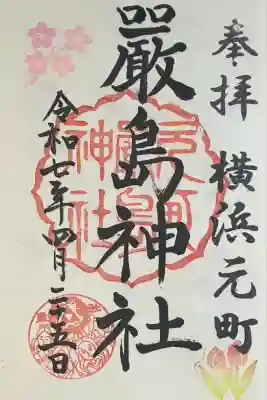 奉拝 横浜元町
嚴島神社
令和七年四月二十五日
元町
嚴島
神社